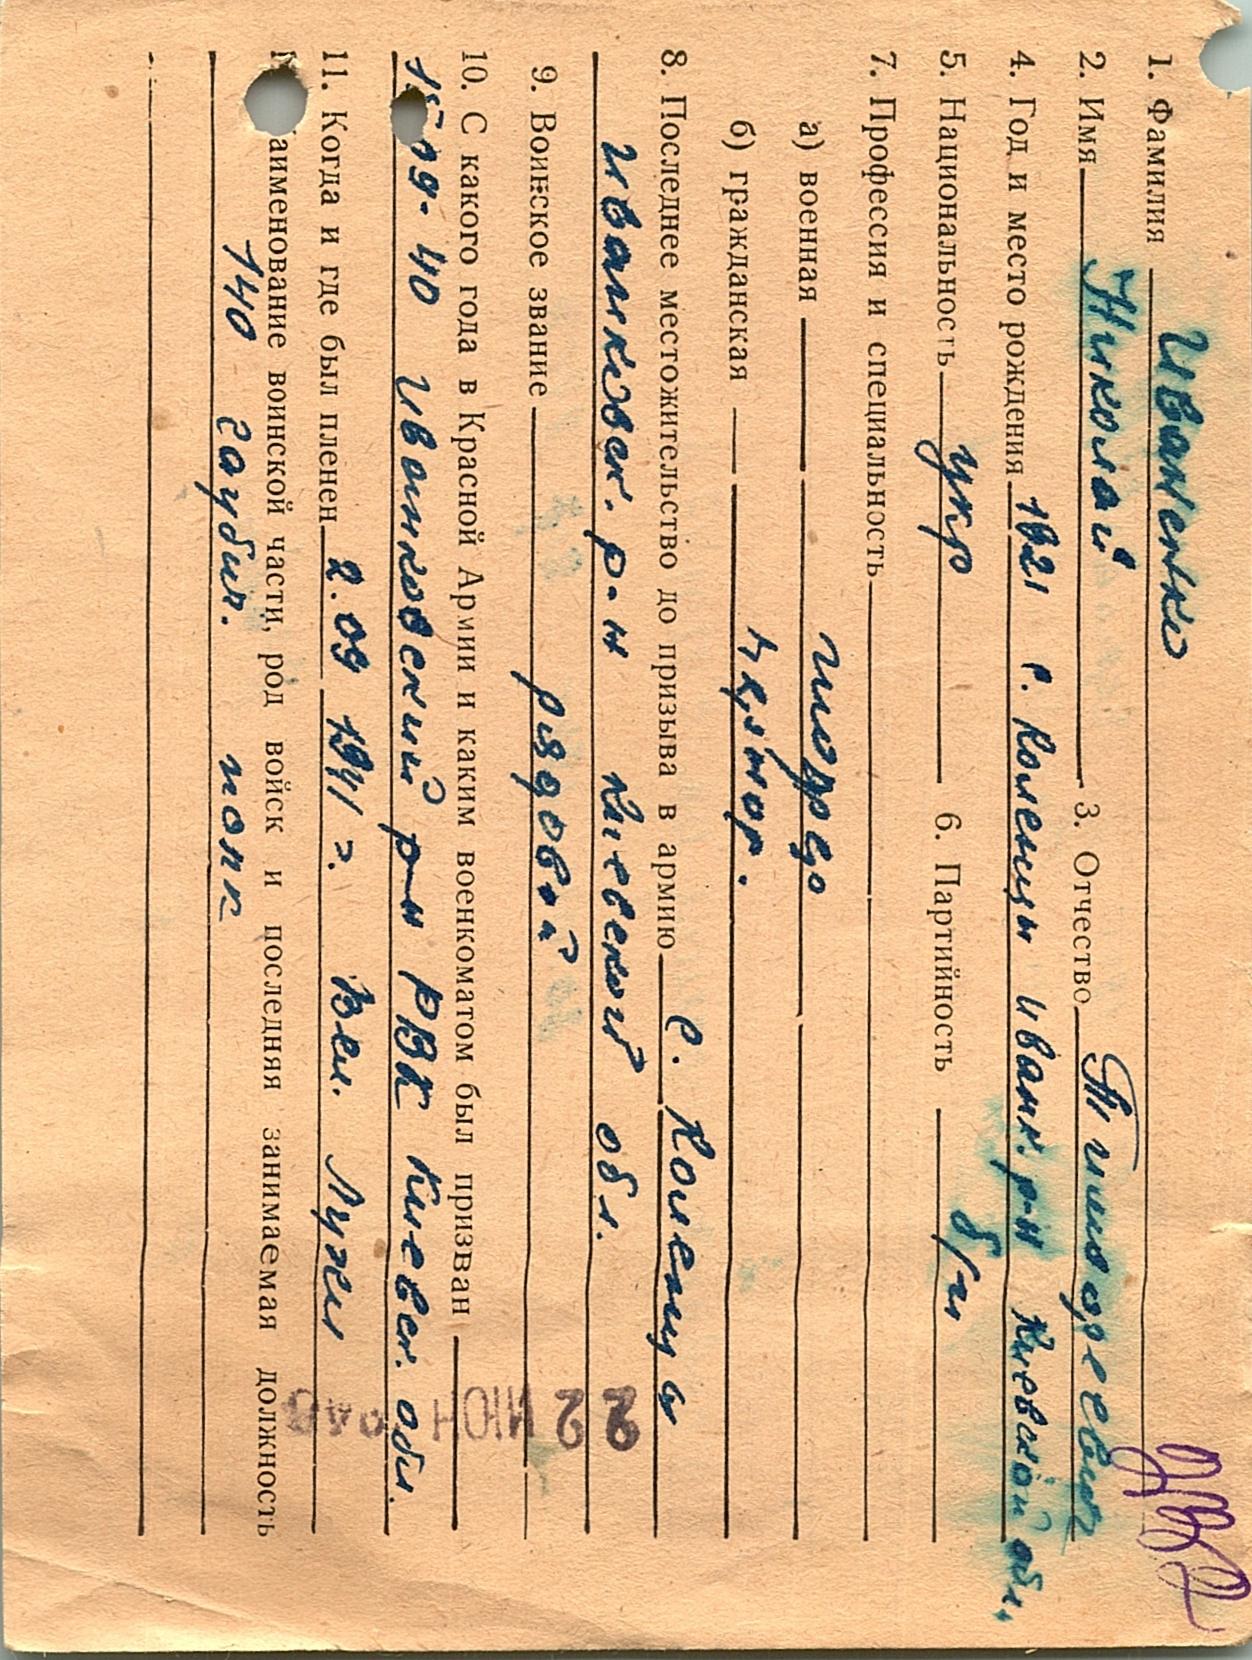 1. Фамилия Иваненко
2. Имя Николай 3. Отчество Тимофеевич
4. Год и место рождения 1921 с. Коленцы Иванк. р-н Киевской обл.
5. Национальность укр 6. Партийность б/п
7. Профессия и специальность
а) военная
б) гражданская
8. Последнее местожительство до призыва в армию с. Коленцы
Иванковск. р-н Киевской обл.
9. Воинское звание рядовой
10. С какого года в Красной Армии и каким военкоматом был призван
09-40 Иванковский р-н РВК Киевск. обл.
11. Когда и где был пленен 2.09 1941 г. Вел. Луки
аименование воинской части, род войск и последняя занимаемая должность
140 гаубич. полк
22 ИЮН